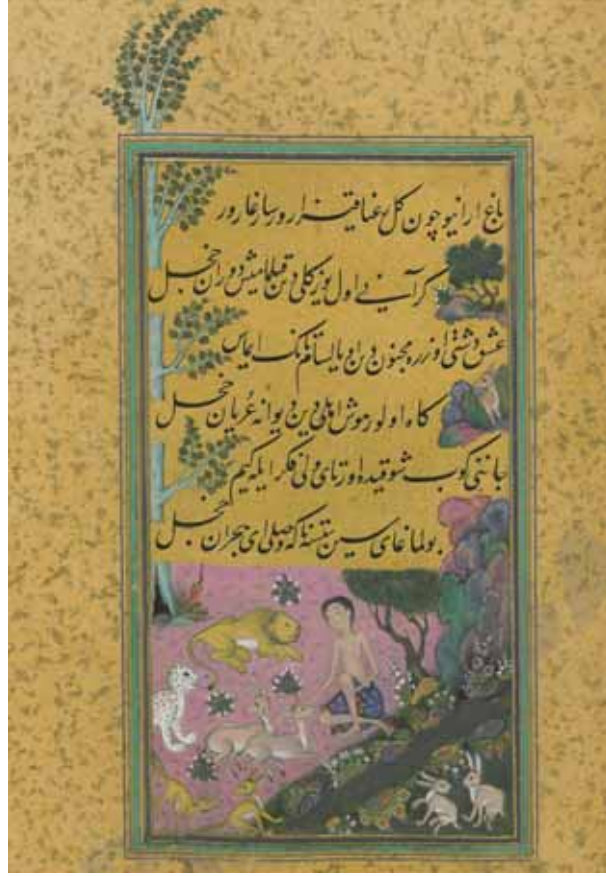 باغ ارا نیوچون کل رعنا قیزارور سارغارور
کر آنی اول یوز کلی دین قیلمامیش دوران خجل
عشق دشتی اوزره مجنون دین اویالسام تانک ایماس
کاه اولور هوش اهلی دین دیوانه عریان خجل
جاننی کوب شوقیده اورتای ولی فکر ایله کیم
بولماغای سین ناکه وصلی ای هجران خجل